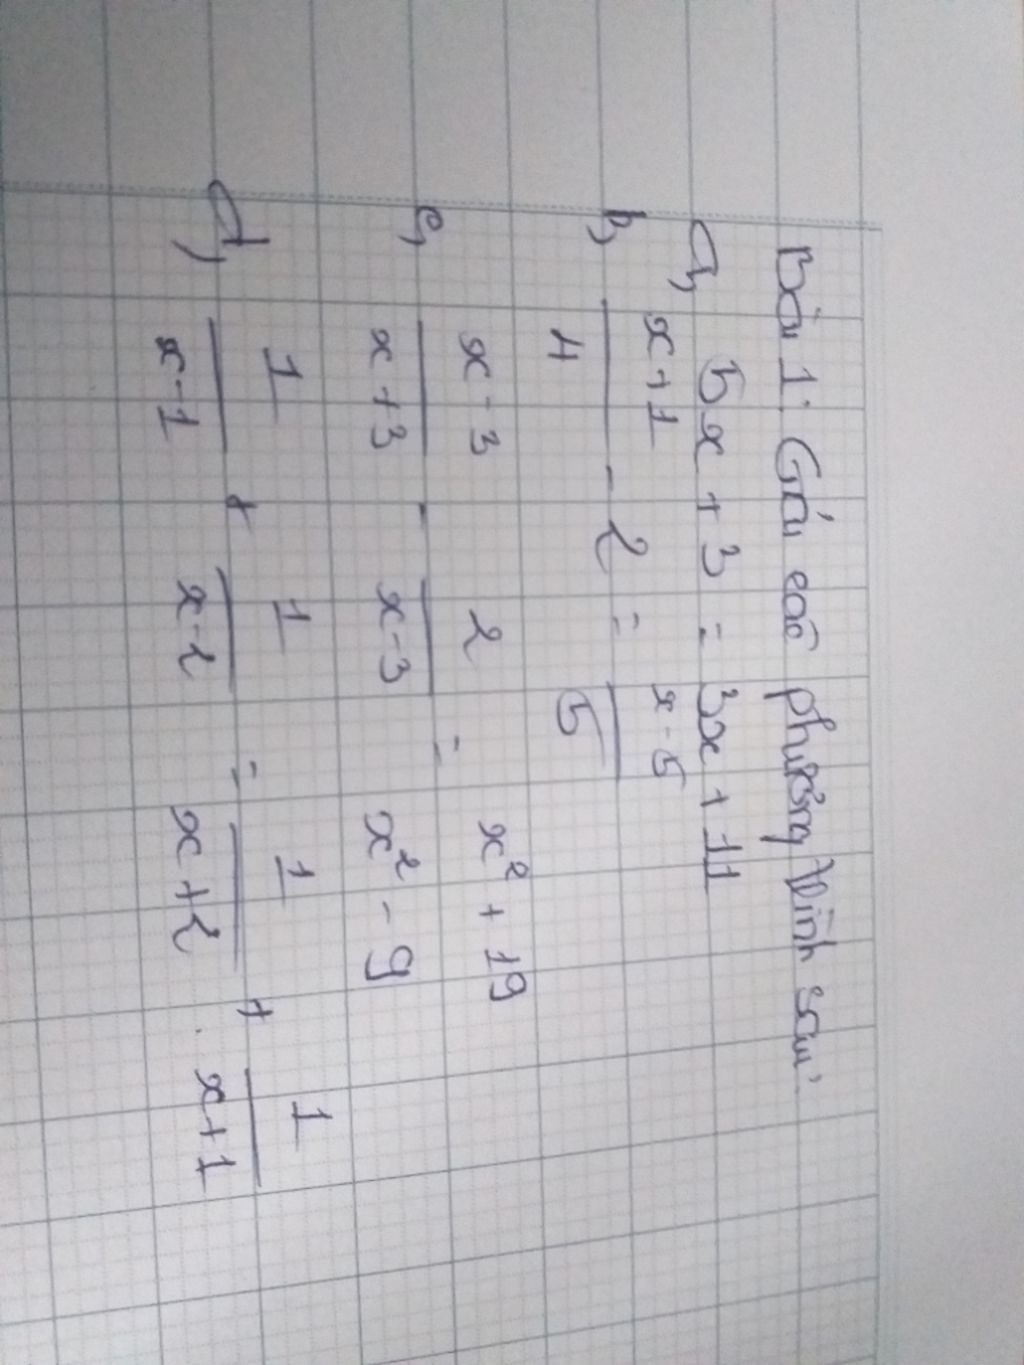 Bài 1: Giải các phương trình sau:
a, 5x + 3 = 3x + 11
b, \frac{x+1}{4} - 2 = \frac{x-5}{5}
c, \frac{x-3}{x+3} - \frac{2}{x-3} = \frac{x² + 19}{x² - 9}
d, \frac{1}{x-1} + \frac{1}{x-2} = \frac{1}{x+2} + \frac{1}{x+1}